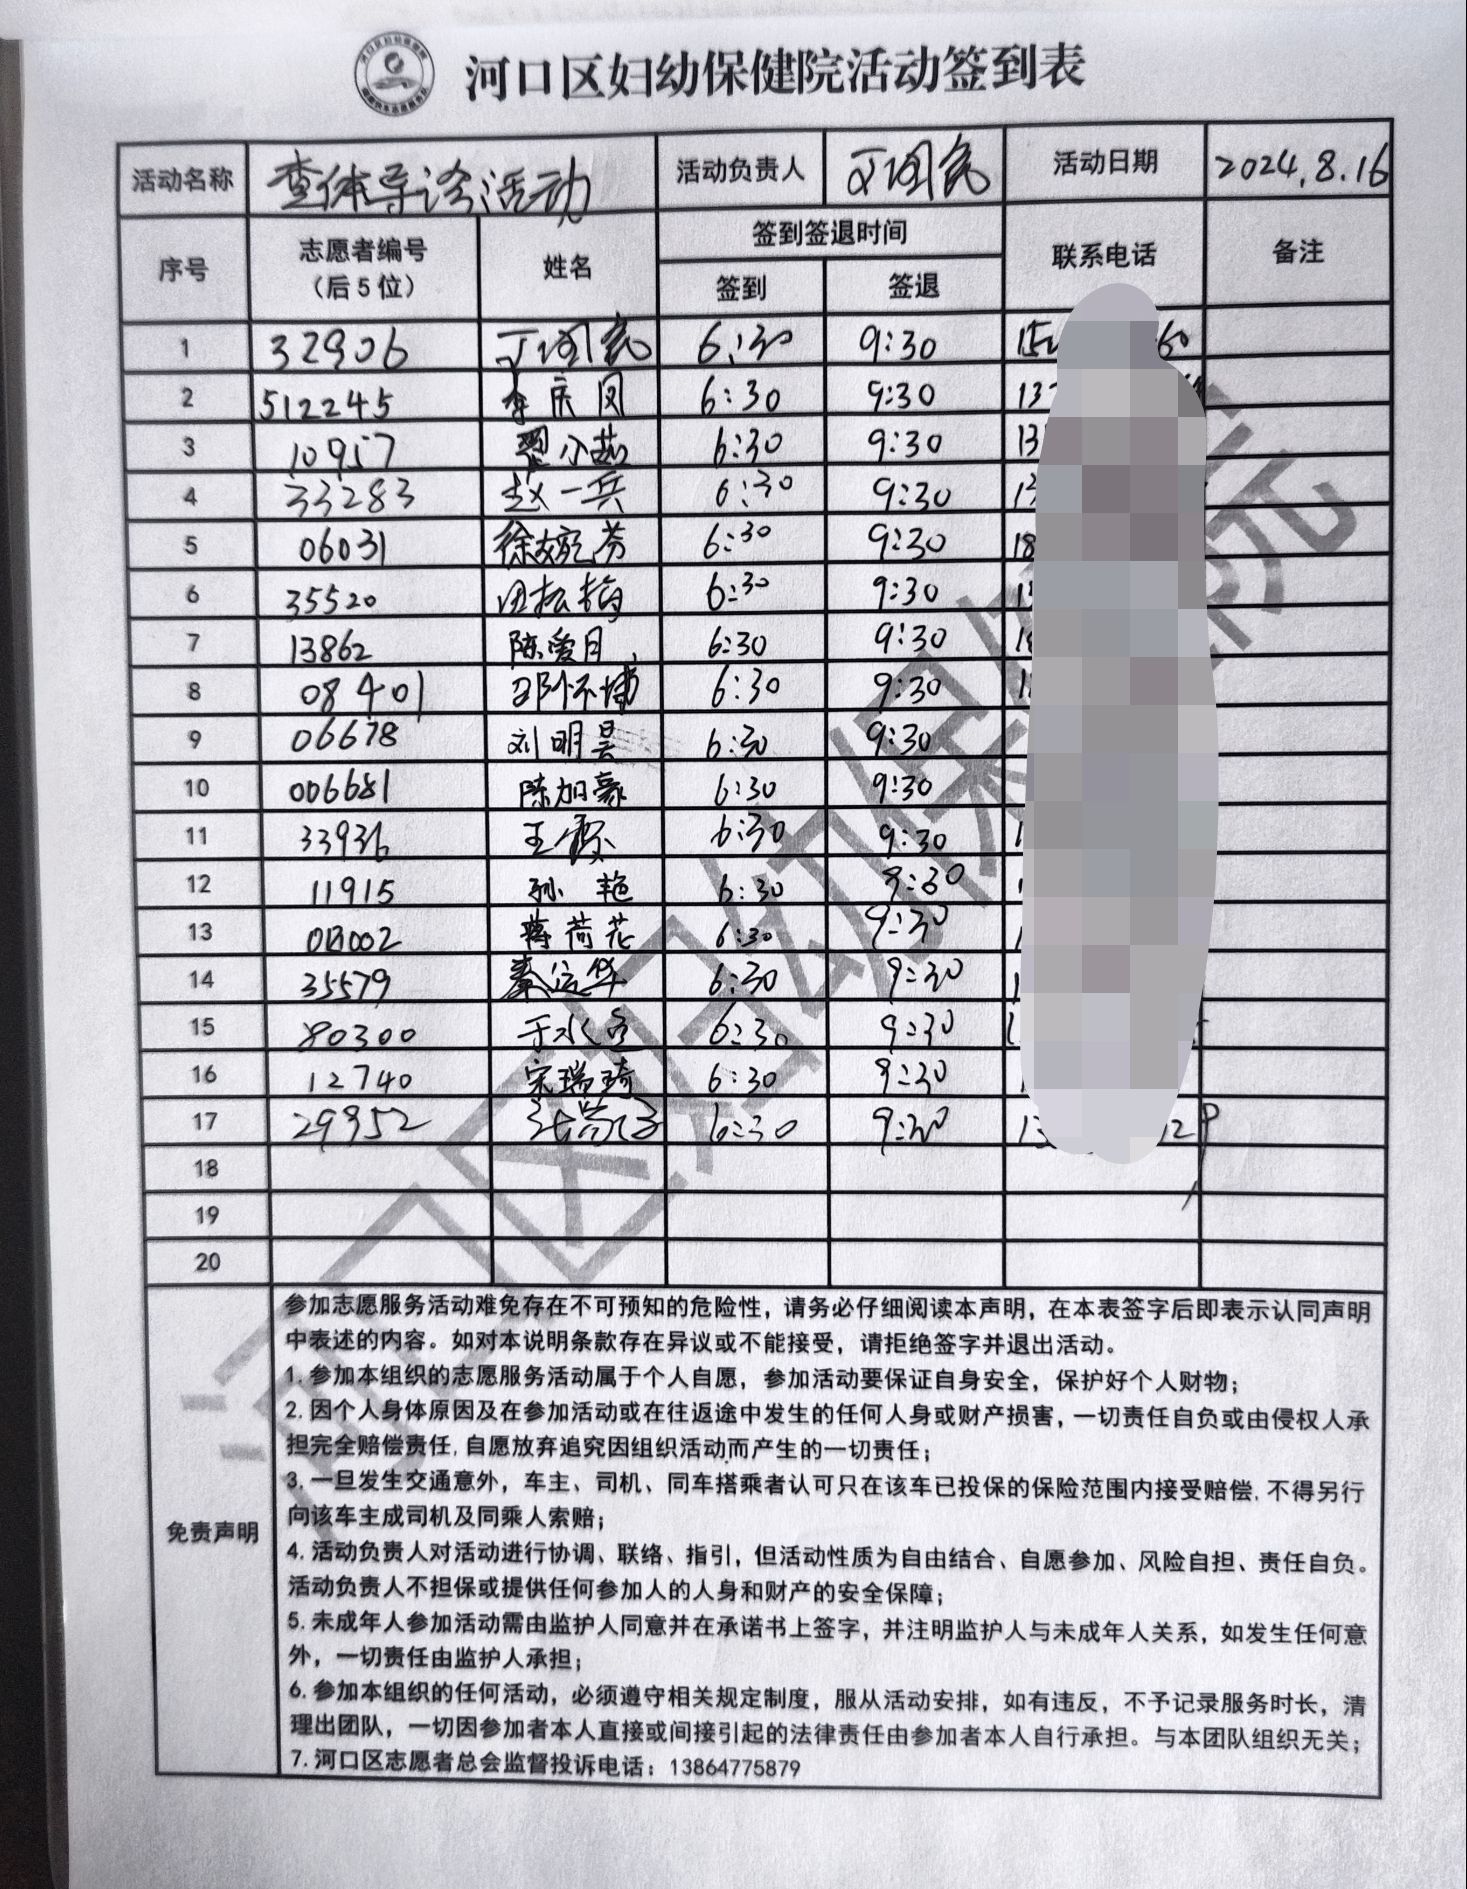 河口区妇幼保健院活动签到表
活动名称 查体导诊活动 活动负责人 活动日期 2024.8.16
序号 志愿者编号 姓名 签到签退时间 联系电话 备注
(后5位) 签到 签退
1 32906 6:30 9:30
2 512245 李庆凤 6:30 9:30
3 10957 翟小燕 6:30 9:30
4 33283 赵一兵 6:30 9:30
5 06031 徐婉芬 6:30 9:30
6 35520 6:30 9:30
7 13862 陈爱月 6:30 9:30
8 08401 6:30 9:30
9 06678 刘明昊 6:30 9:30
10 006681 陈加豪 6:30 9:30
11 33936 王霞 6:30 9:30
12 11915 孙艳 6:30 9:30
13 蒋荷花 6:30 9:30
14 35579 秦运华 6:30 9:30
15 80300 6:30 9:30
16 12740 宋瑞琦 6:30 9:30
17 29952 6:30 9:30
18
19
20
免责声明
参加志愿服务活动难免存在不可预知的危险性，请务必仔细阅读本声明，在本表签字后即表示认同声明
中表述的内容。如对本说明条款存在异议或不能接受，请拒绝签字并退出活动。
1.参加本组织的志愿服务活动属于个人自愿，参加活动要保证自身安全，保护好个人财物；
2.因个人身体原因及在参加活动或在往返途中发生的任何人身或财产损害，一切责任自负或由侵权人承
担完全赔偿责任,自愿放弃追究因组织活动而产生的一切责任；
3.一旦发生交通意外，车主、司机、同车搭乘者认可只在该车已投保的保险范围内接受赔偿,不得另行
向该车主成司机及同乘人索赔；
4.活动负责人对活动进行协调、联络、指引，但活动性质为自由结合、自愿参加、风险自担、责任自负。
活动负责人不担保或提供任何参加人的人身和财产的安全保障；
5.未成年人参加活动需由监护人同意并在承诺书上签字，并注明监护人与未成年人关系，如发生任何意
外，一切责任由监护人承担；
6.参加本组织的任何活动，必须遵守相关规定制度，服从活动安排，如有违反，不予记录服务时长，清
理出团队，一切因参加者本人直接或间接引起的法律责任由参加者本人自行承担。与本团队组织无关；
7.河口区志愿者总会监督投诉电话：13864775879
河口区妇幼保健院